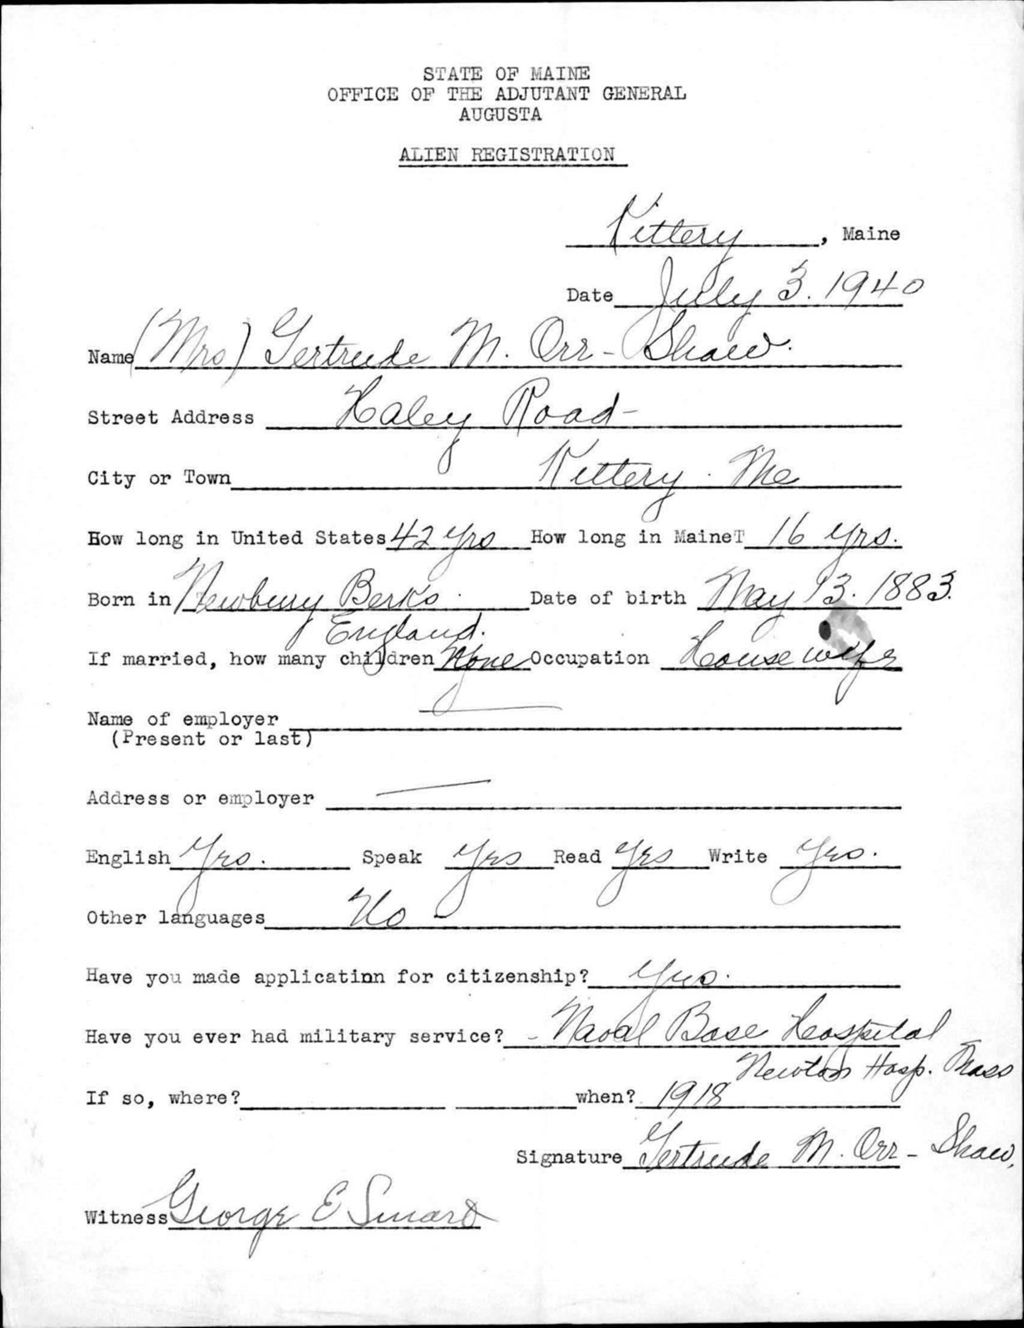 STATE OF MAINE
OFFICE OF THE ADJUTANT GENERAL
AUGUSTA
ALIEN REGISTRATION
Kittery, Maine
Date July 3. 1940
Name (Mrs) Gertrude M. Orr - Shaw.
Street Address Haley Road -
City or Town Kittery . Me
How long in United States 42 yrs How long in MaineT 16 yrs.
Born in Newbury Berks . Date of birth May 13. 1883.
England.
If married, how many children None Occupation Housewife
Name of employer
(Present or last)
Address or employer
English Yes. Speak Yes Read Yes Write Yes.
Other languages No -
Have you made applicatinn for citizenship? Yes.
Have you ever had military service? - Naval Base Hospital
Newton Hosp. Mass
If so, where? when? 1918
Signature Gertrude M. Orr - Shaw,
Witness George E Smart